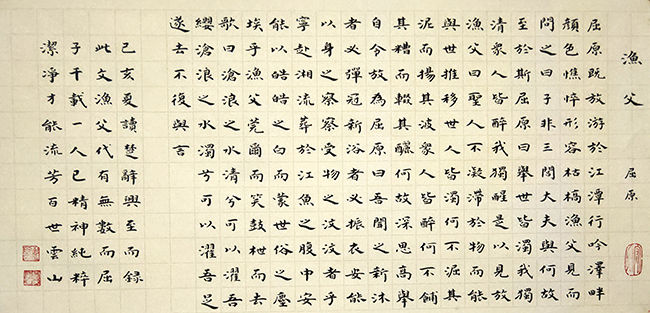 漁父 屈原
屈原既放游於江潭行吟澤畔
顏色憔悴形容枯槁漁父見而
問之曰子非三閭大夫與何故
至於斯屈原曰舉世皆濁我獨
清眾人皆醉我獨醒是以見放
漁父曰聖人不凝滯於物而能
與世推移世人皆濁何不淈其
泥而揚其波眾人皆醉何不餔
其糟而歠其醨何故深思高舉
自令放為屈原曰吾聞之新沐
者必彈冠新浴者必振衣安能
以身之察察受物之汶汶者乎
寧赴湘流葬於江魚之腹中安
能以皓皓之白而蒙世俗之塵
埃乎漁父莞爾而笑鼓枻而去
歌曰滄浪之水清兮可以濯吾
纓滄浪之水濁兮可以濯吾足
遂去不復與言
己亥夏讀楚辭興至而錄
此文漁父代有無數而屈
子千載一人已精神純粹
潔淨才能流芳百世雲山